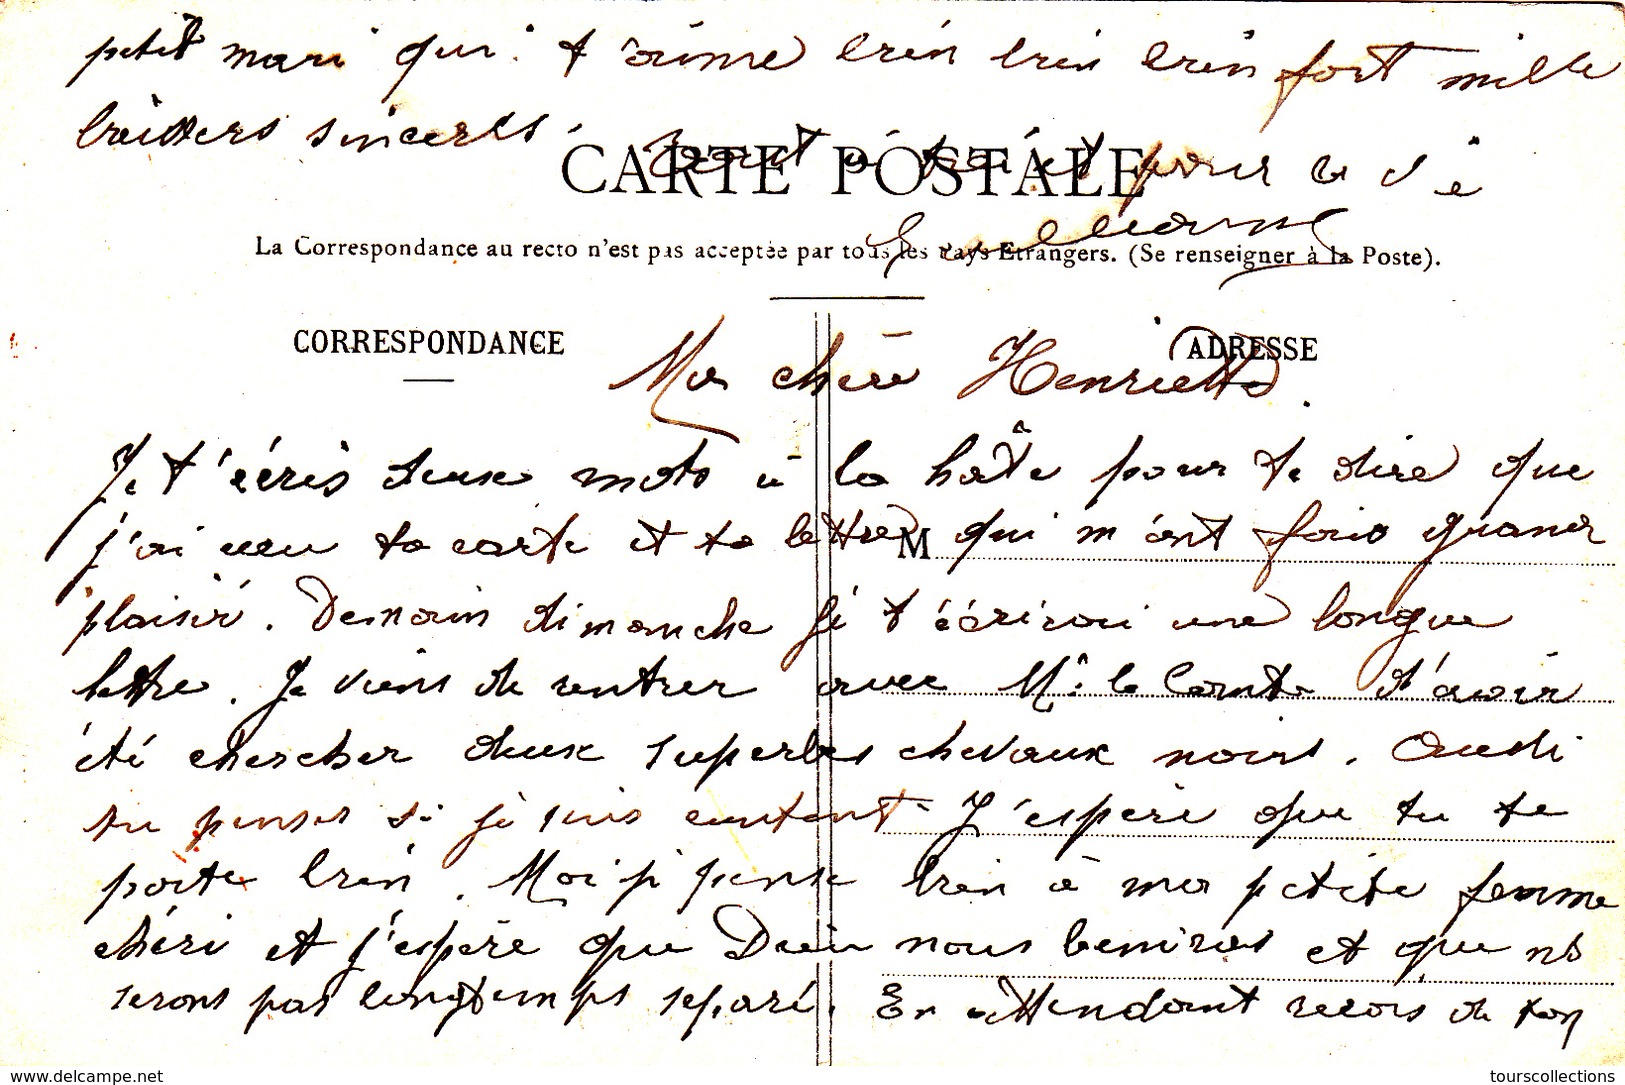 petit mari qui t'aime bien bien bien fort mille
baisers sincères
CARTE POSTALE
tout à toi et pour la vie
Guillaume
La Correspondance au recto n'est pas acceptée par tous les Pays Etrangers. (Se renseigner à la Poste).
CORRESPONDANCE
ADRESSE
Ma chère Henriette.
Je t'écris deux mots à la hâte pour te dire que
j'ai reçu ta carte et ta lettre qui m'ont fais grand
M
plaisir. Demain dimanche je t'écrirai une longue
lettre. Je viens de rentrer avec Mr le Comte d'avoir
été chercher deux superbes chevaux noirs. Aussi
tu penses si je suis content. J'espère que tu te
porte bien. Moi je pense bien à ma petite femme
chéri et j'espère que Dieu nous beniras et que ns
serons pas longtemps séparé. En attendant recois de ton
www.delcampe.net
tourscollections